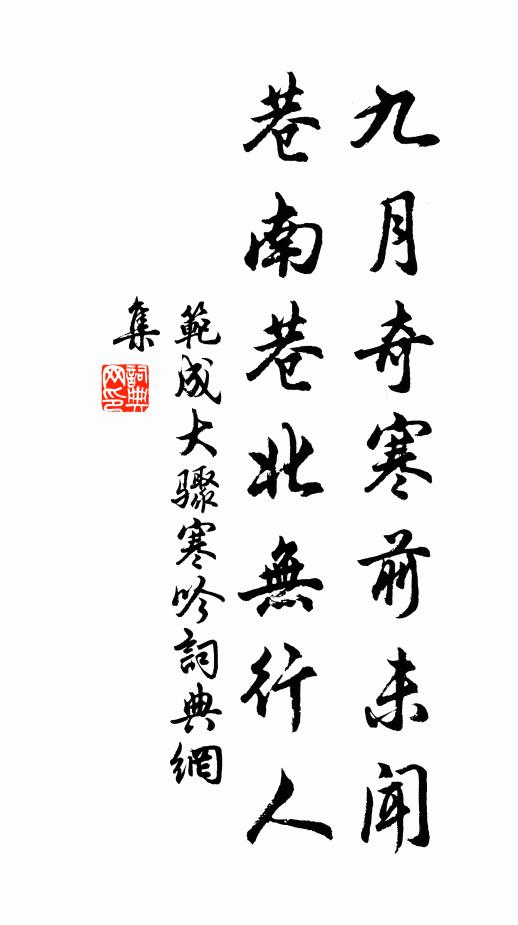 九月奇寒前未聞
巷南巷北無行人
範成大驟寒吟詞典網
集
詞典網印